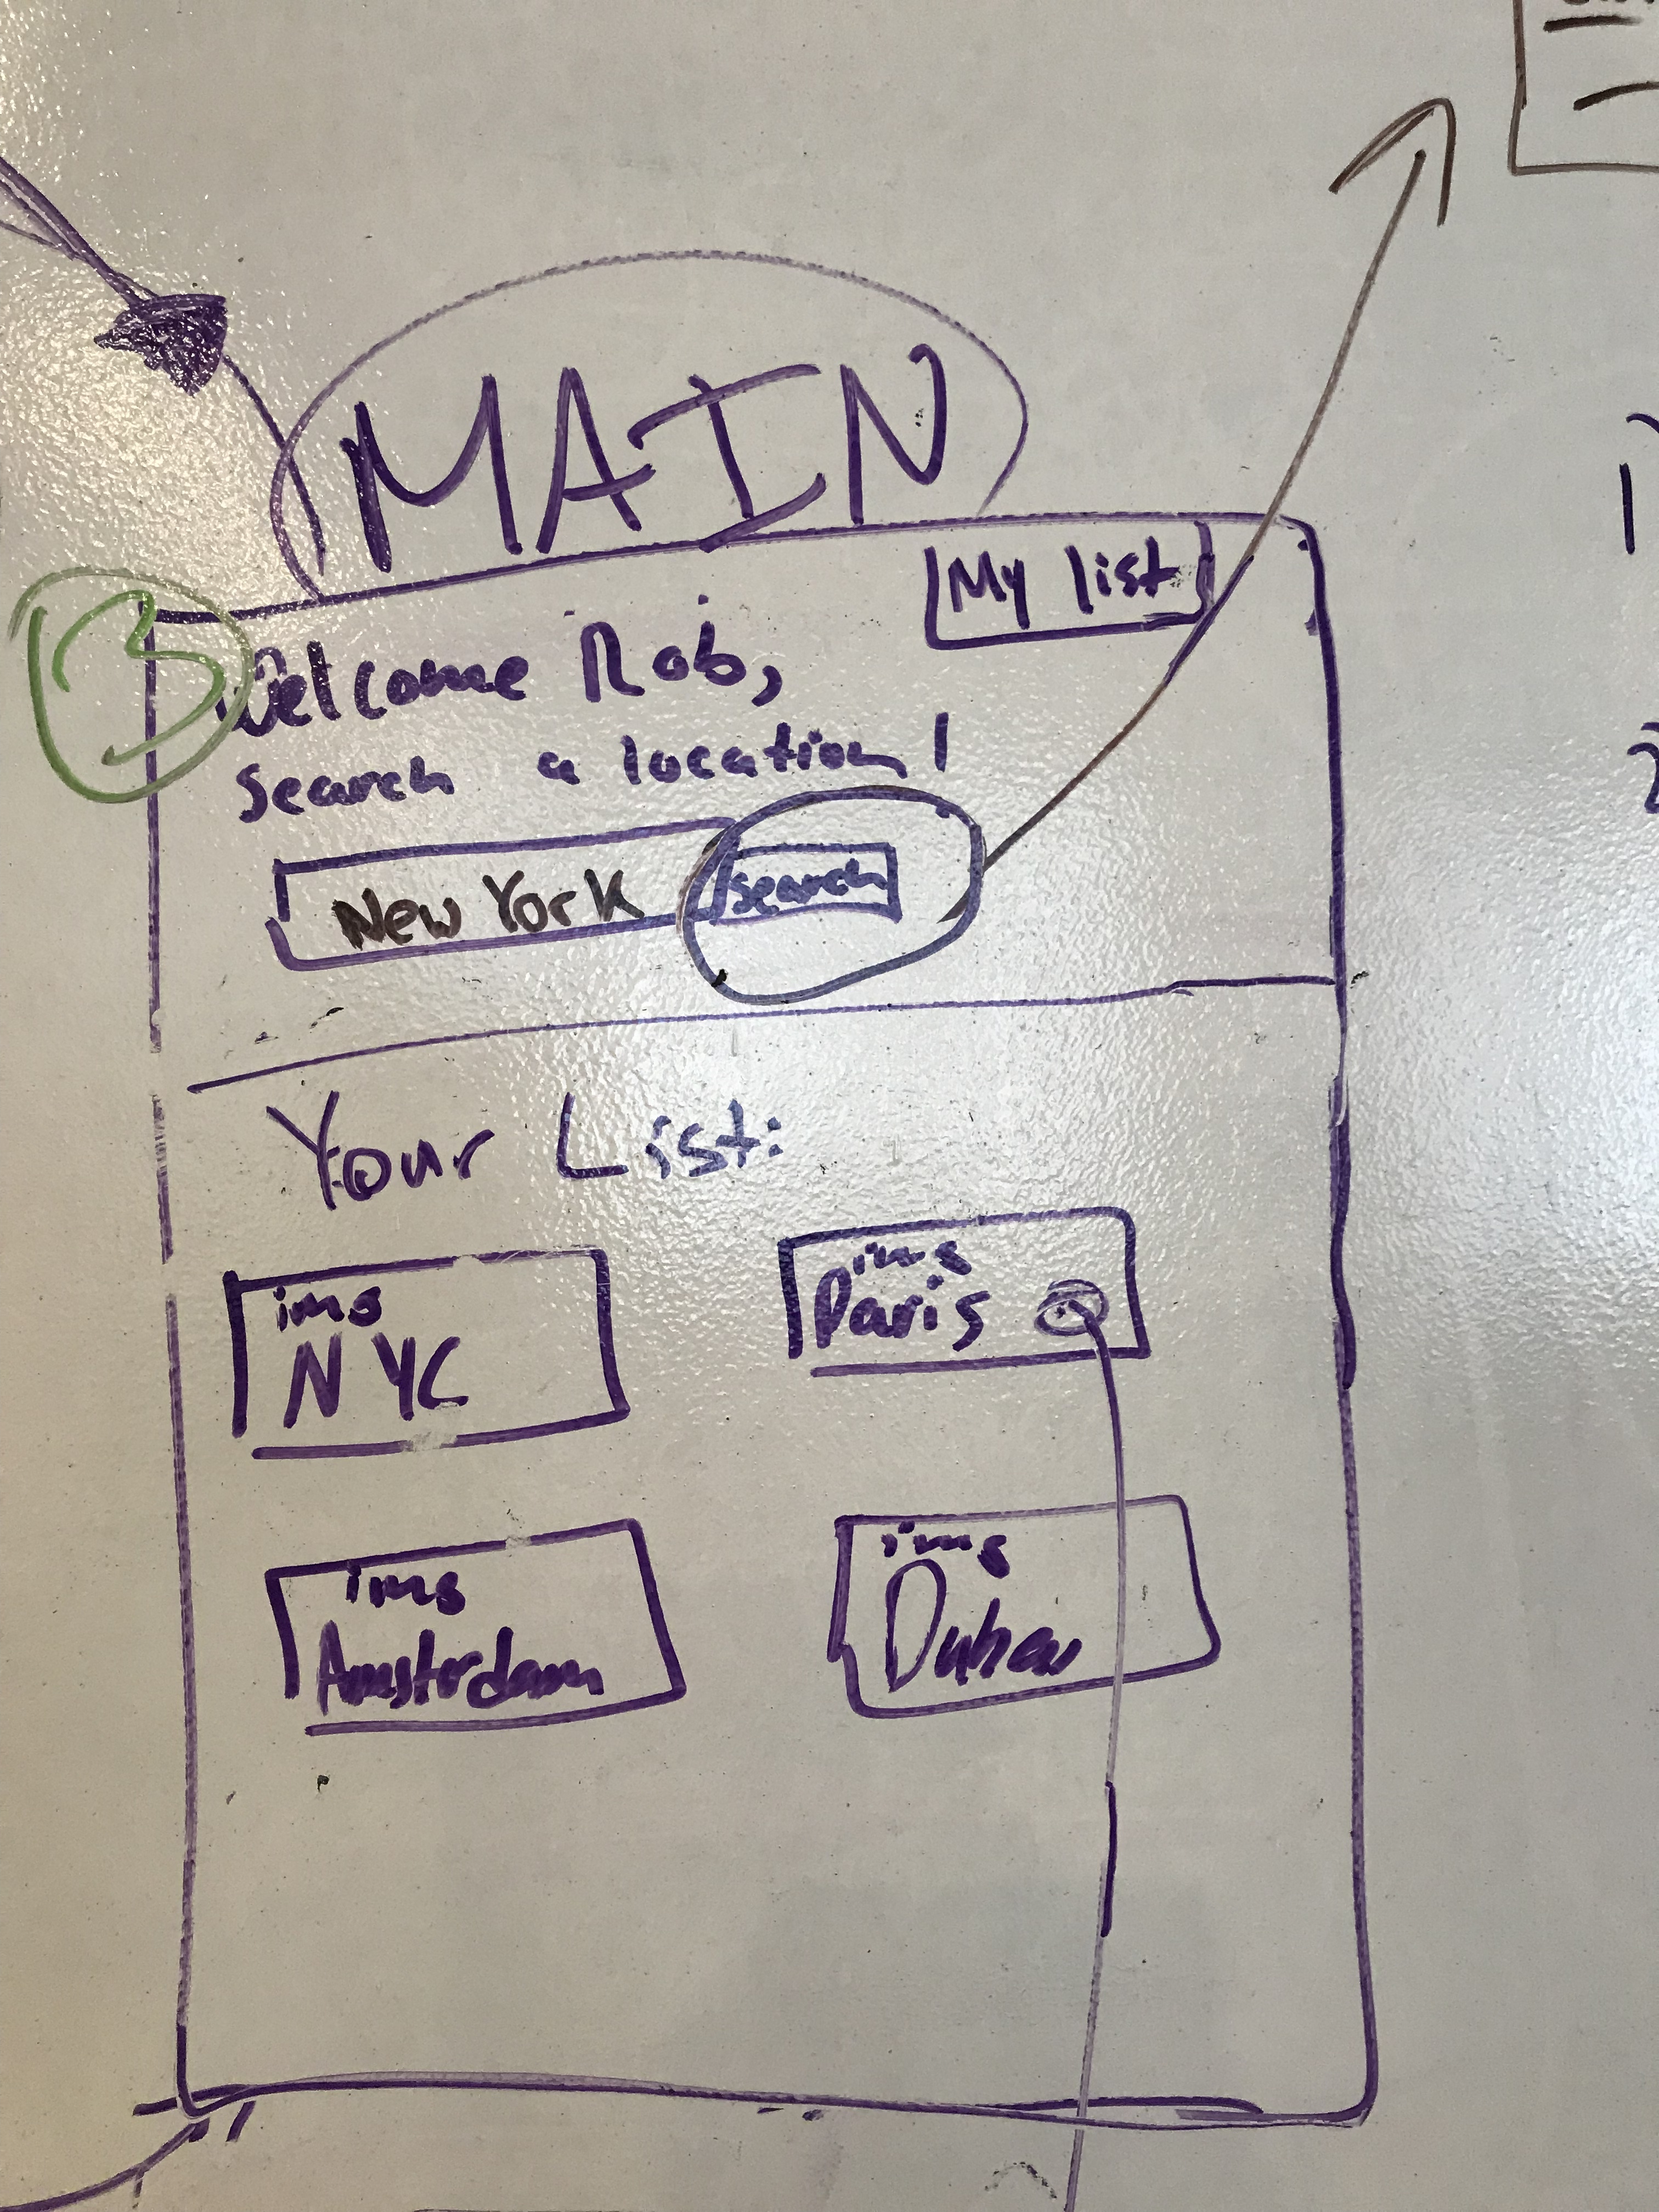 MAIN
3
My list
Welcome Rob,
search a location!
New York
search
Your List:
img
NYC
img
Paris
img
Amsterdam
img
1)